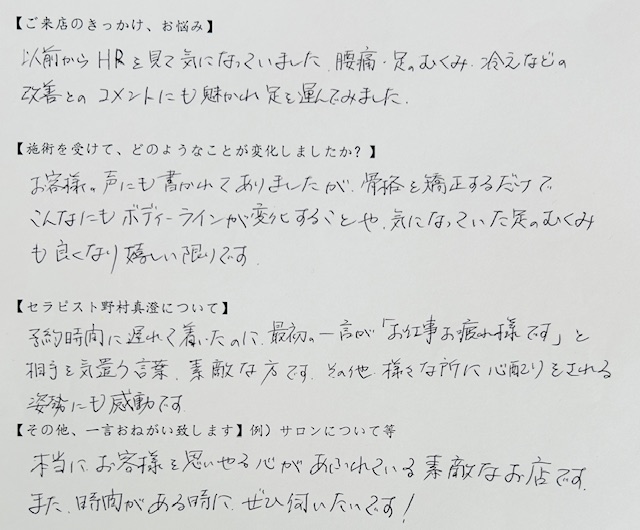 【ご来店のきっかけ、お悩み】
以前から HRを見て気になっていました。腰痛・足のむくみ、冷えなどの
改善とのコメントにも魅かれ足を運んでみました。
【施術を受けて、どのようなことが変化しましたか？】
お客様の声にも書かれてありましたが、骨格を矯正するだけで
こんなにもボディーラインが変化することや、気になっていた足のむくみ
も良くなり嬉しい限りです。
【セラピスト野村真澄について】
予約時間に遅れて着いたのに、最初の一言が「お仕事お疲れ様です」と
相手を気遣う言葉、素敵な方です。その他、様々な所に心配りをされる
姿勢にも感動です。
【その他、一言おねがい致します】例）サロンについて等
本当に、お客様を思いやる心があふれている素敵なお店です。
また、時間がある時に、ぜひ伺いたいです！